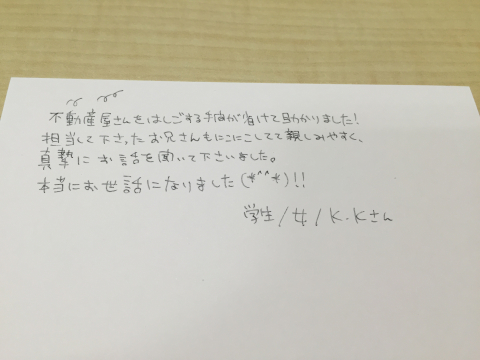 不動産屋さんをはしごする手間が省けて助かりました!
担当して下さったお兄さんもにこにこしてて親しみやすく、
真摯にお話を聞いて下さいました。
本当にお世話になりました(*^^*)!!
学生/女/K.Kさん